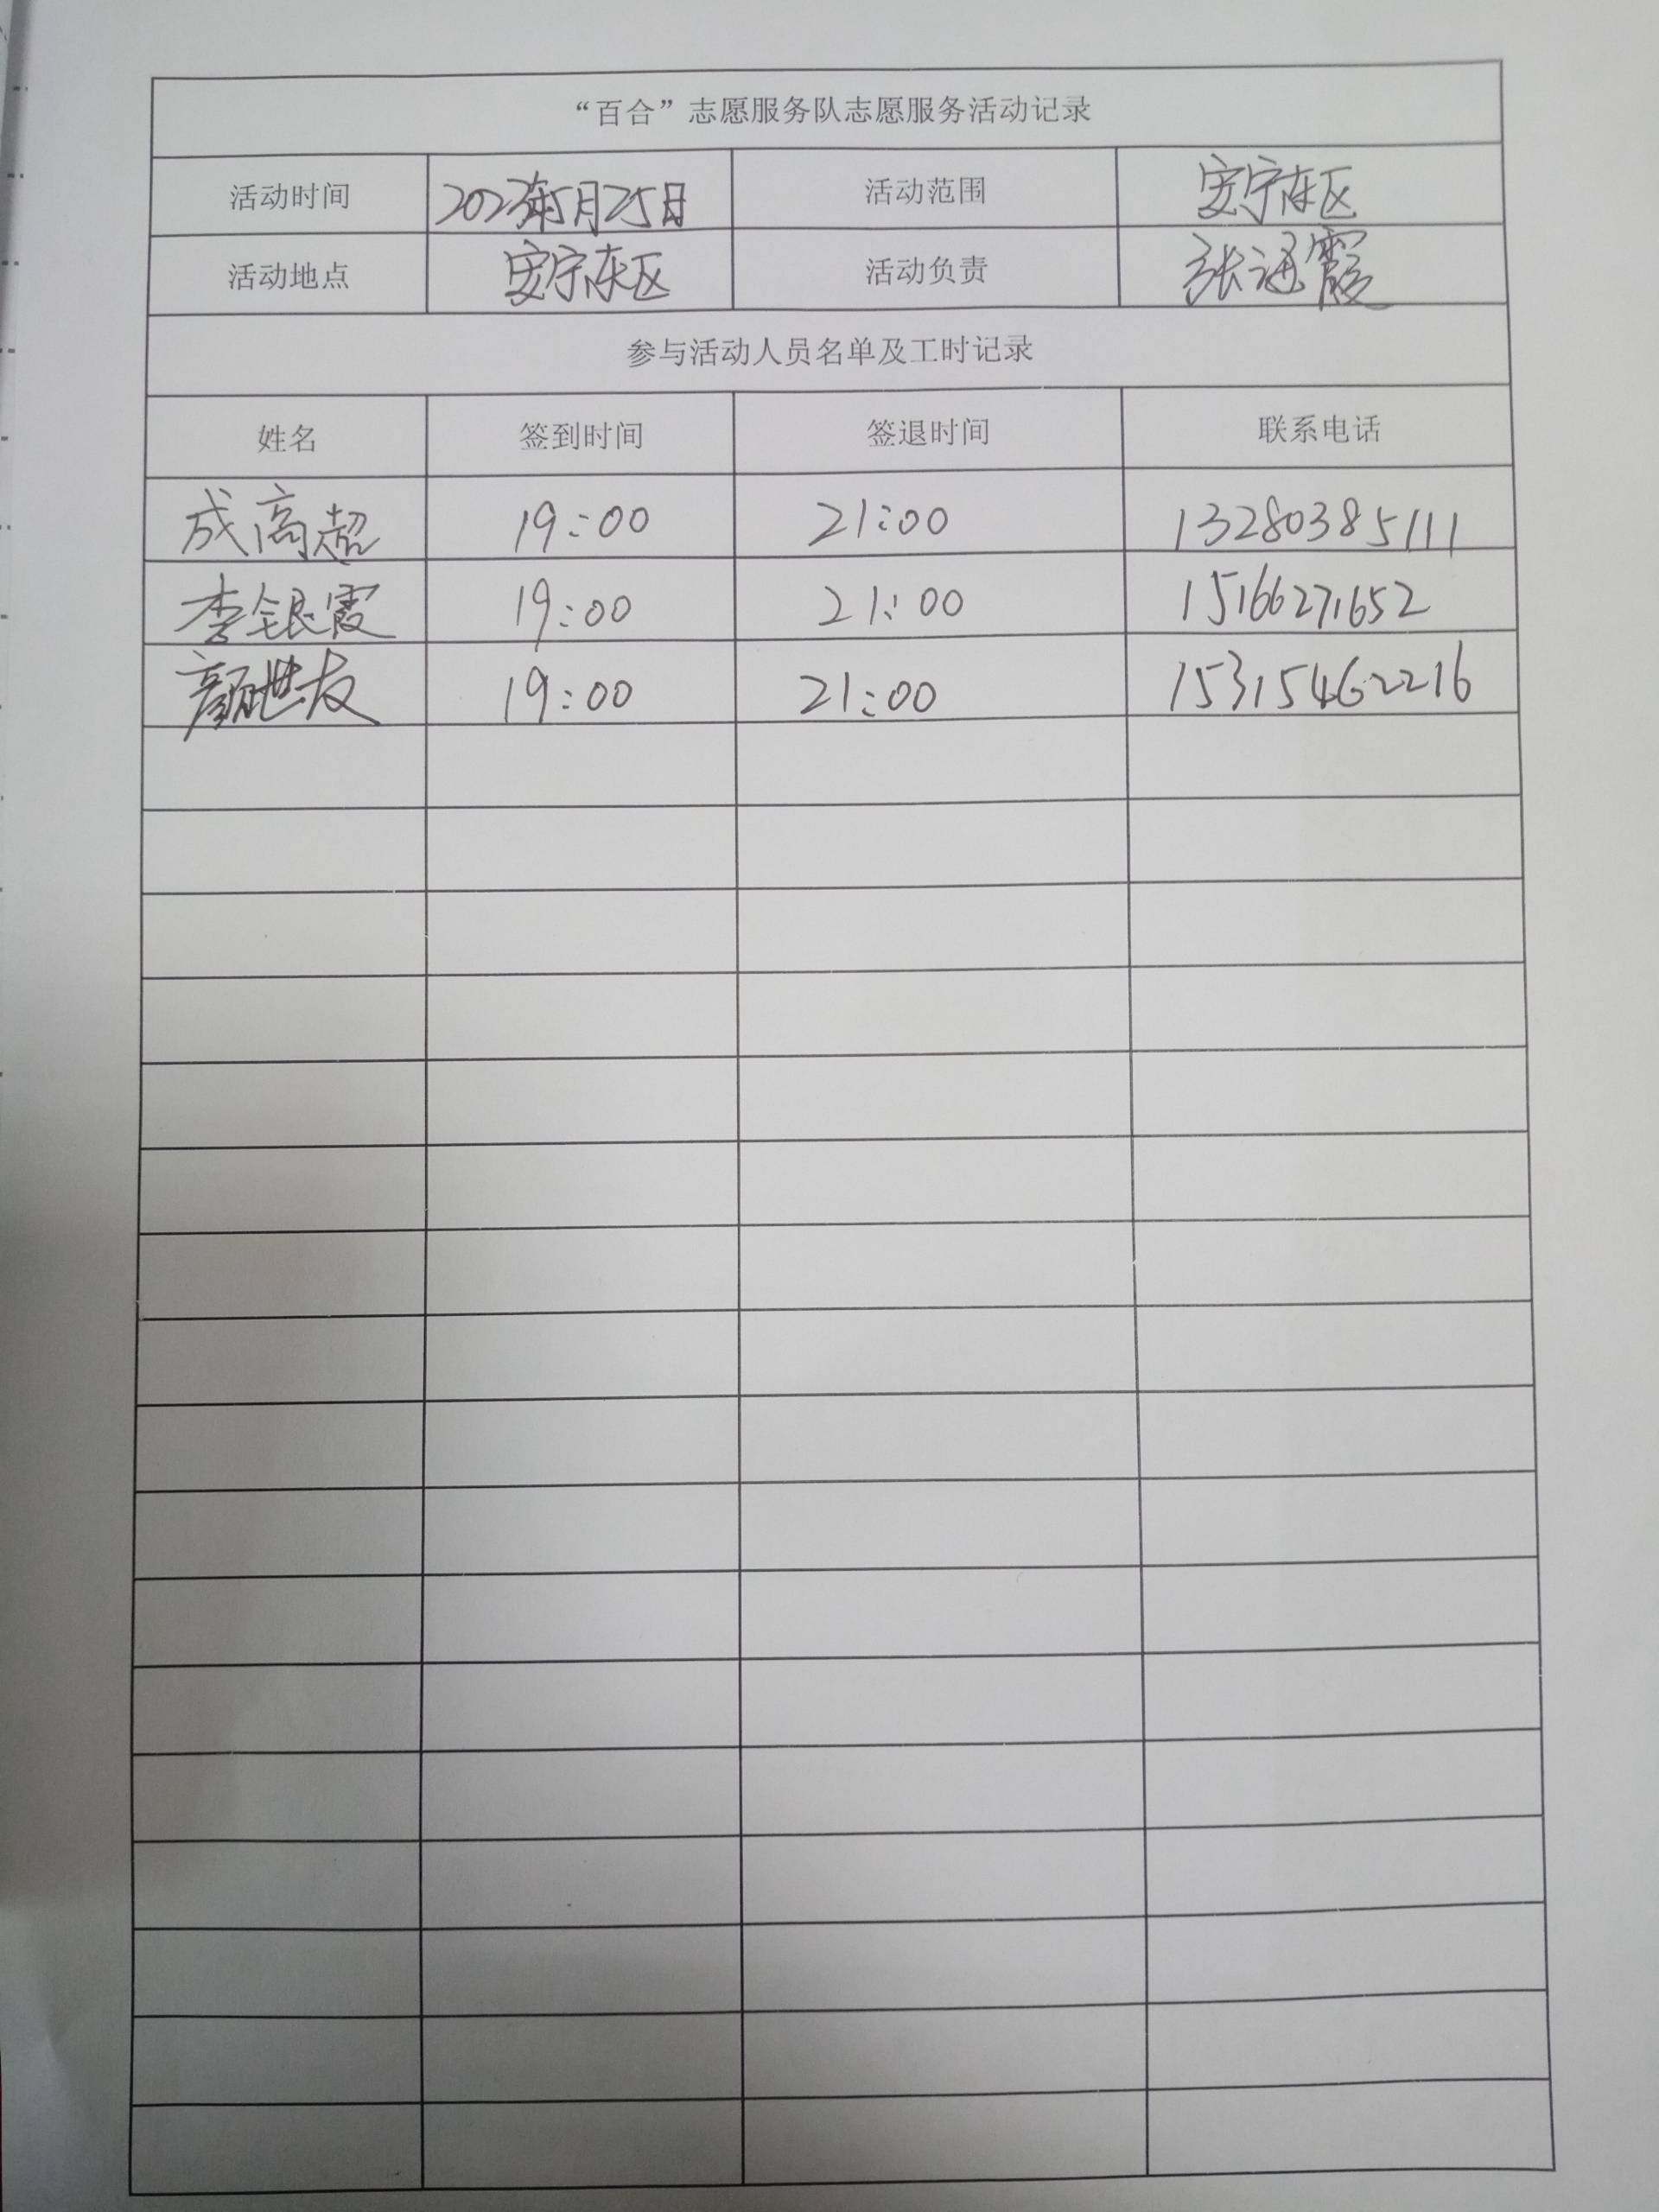 “百合”志愿服务队志愿服务活动记录
活动时间 2023年5月25日 活动范围 安宁东区
活动地点 安宁东区 活动负责 张通霞
参与活动人员名单及工时记录
姓名 签到时间 签退时间 联系电话
成高超 19:00 21:00 13280385111
李银霞 19:00 21:00 15166271652
颜世友 19:00 21:00 15315462216